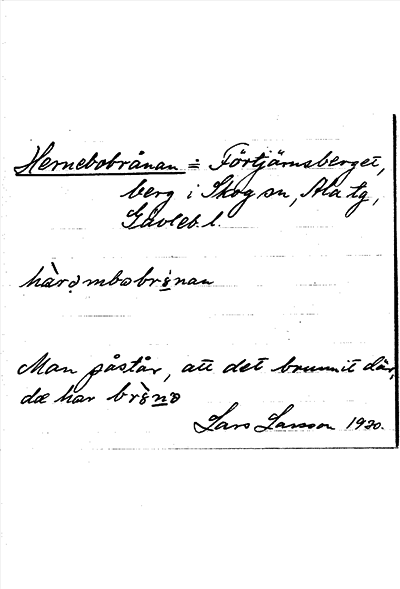 Hernebobränan = Förtjärnsberget,
berg i Skog sn, Ala tg,
Gävleb. l.
Man påstår, att det brunnit där,
dæ har
Lars Larsson 1920.